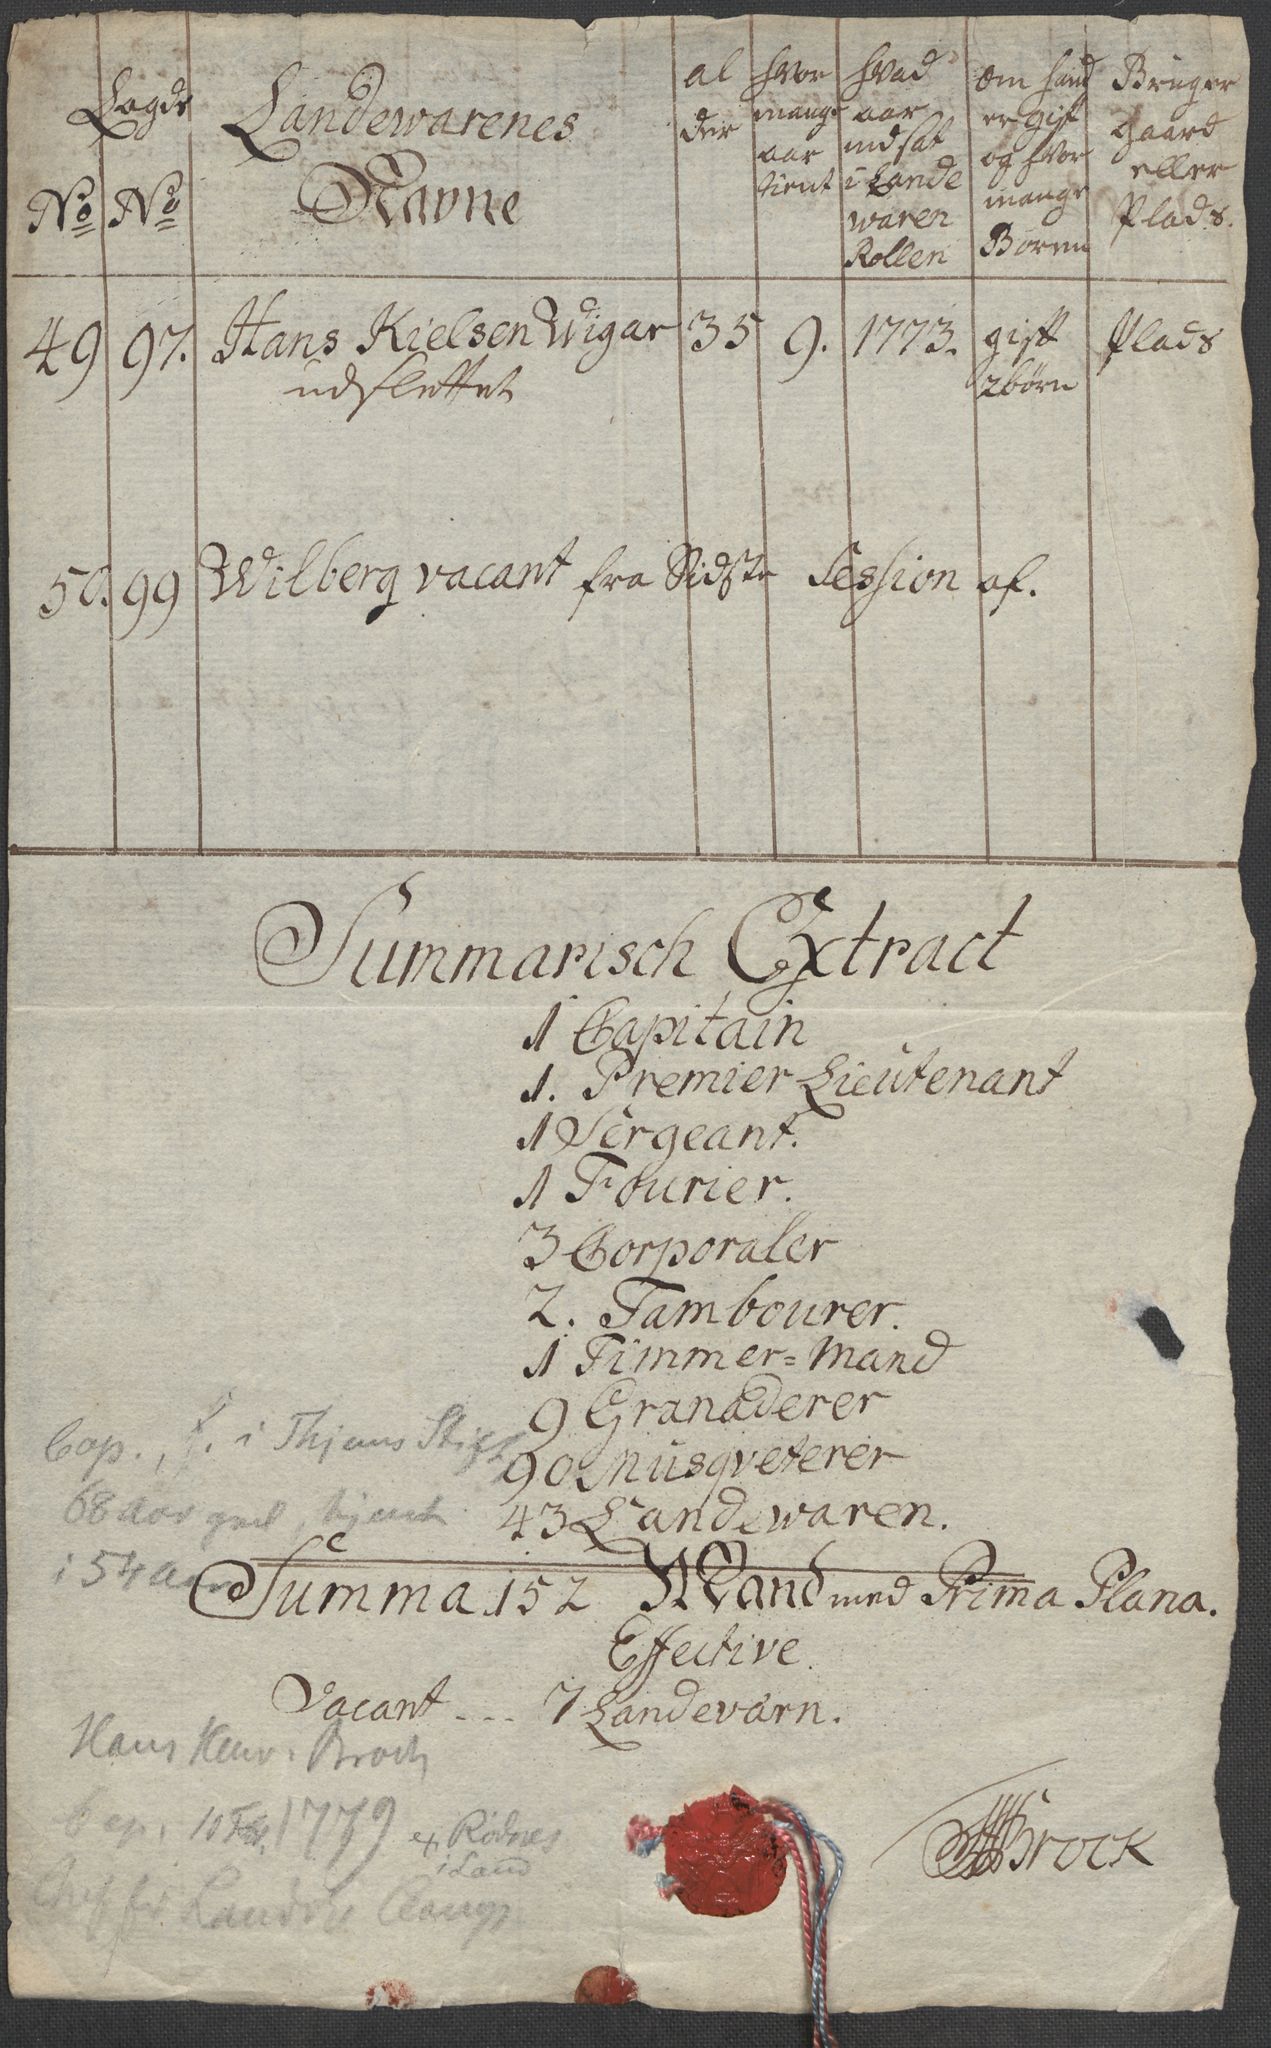 No
Lagds No
Landewarenes Navne
al der
hvor mange aar tient
hvad aar indsat i Lande waren Rollen
om hand er gift og hvor mange Boren
Bruger gaard eller Plads.
49 97. Hans Kielsen Wigar 35 9. 1773. gift 2 børn Plads
udslettet
50. 99 Wilberg vacant fra Sidste Session af.
Summarisch Extract
1 Capitain
1. Premier Lieutenant
1 Sergeant.
1 Fourier.
3 Corporaler
2. Tambourer.
1 Timmer=Mand
9 Granaderer
90 Musqveterer
43 Landewaren.
Summa 152 Mand med Prima Plana.
Effective.
Vacant ... 7 Landevärn.
HHBrock
Cap., f. i Thjems Stift
68 Aar gml, tjent
i 54 Aar
Hans Henr. Broch
Cap. 10 1779
Rødnes
i Land
Chef for Landv.